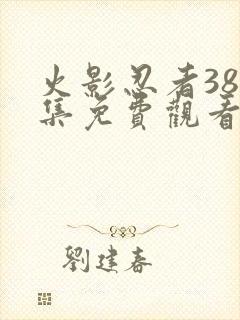 火影忍者38
集免費觀看
劉建春